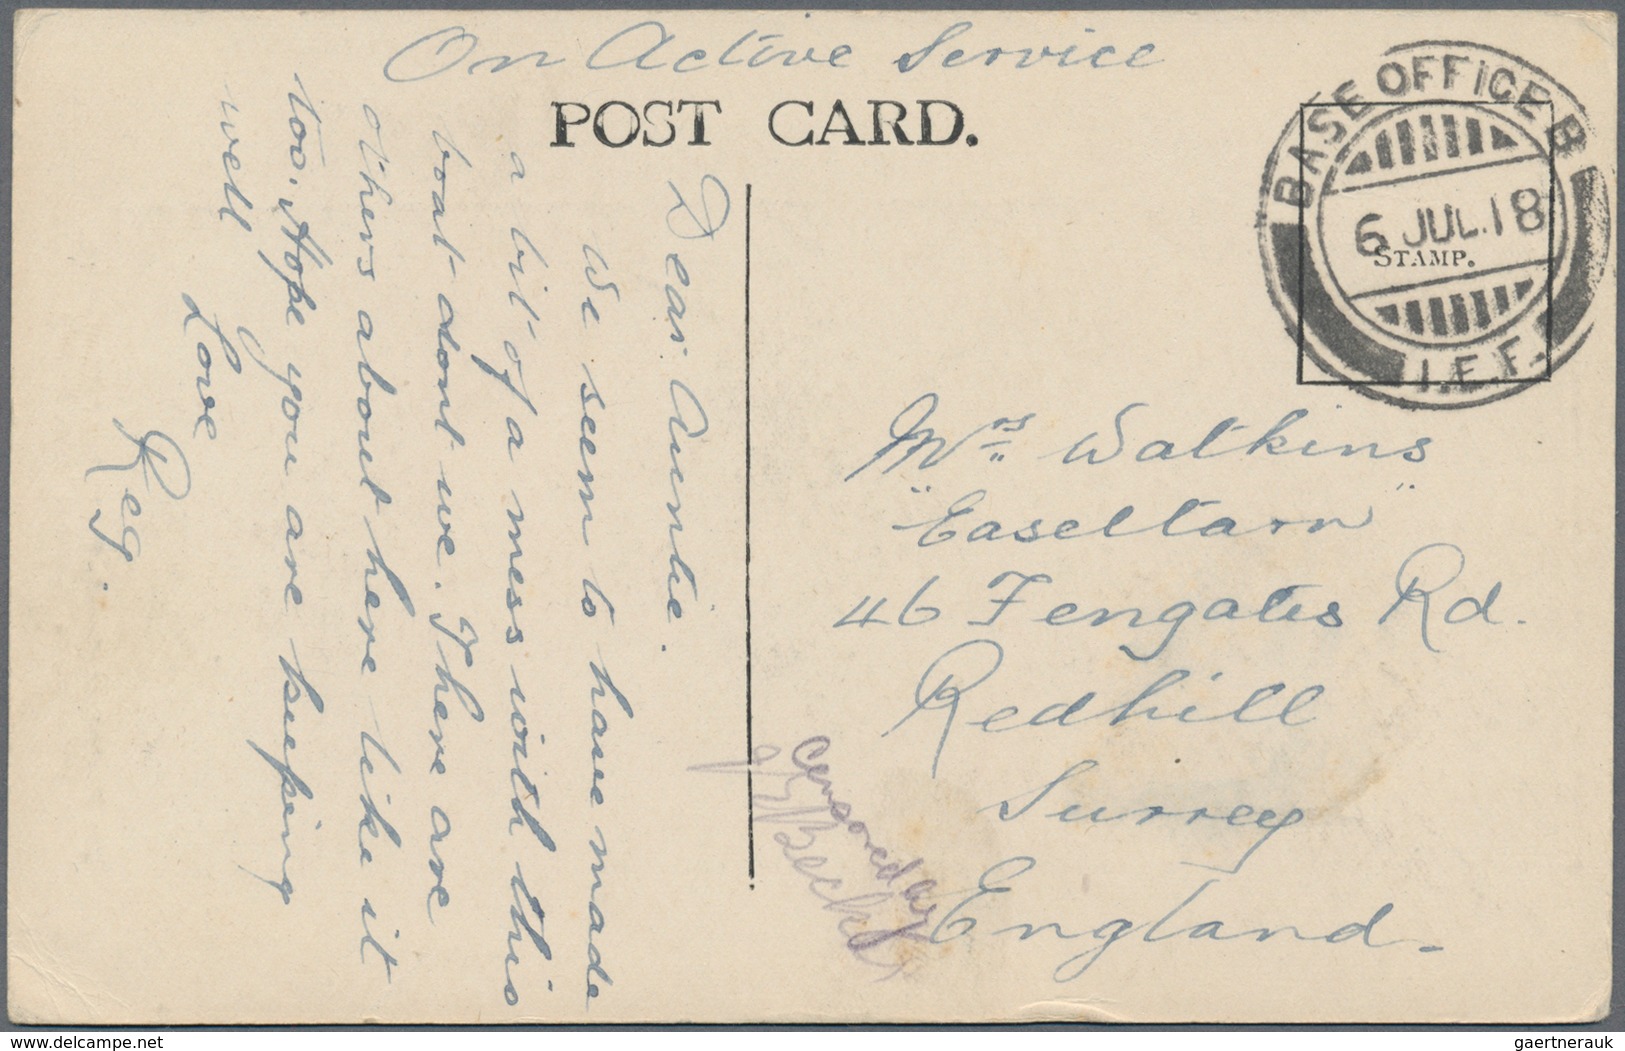 On Active Service
POST CARD.
BASE OFFICE B
6 JUL.18
I.E.F.
STAMP.
Dear Auntie.
We seem to have made
a bit of a mess with this
boat dont we. There are
others about here like it
too. Hope you are keeping
well
Love
Reg.
Mrs Watkins
"Easeltarn"
46 Fengates Rd.
Redhill
Surrey
England.
Censored
delcampe.net
gaertnerauk